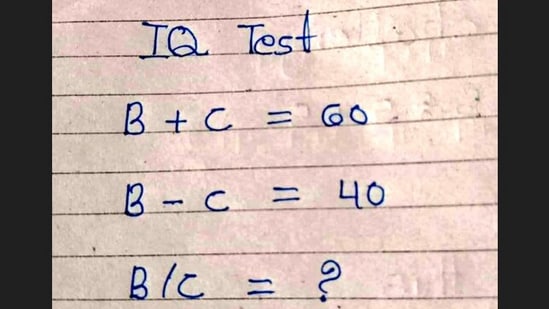 IQ Test
B + C = 60
B - C = 40
B/C = ?